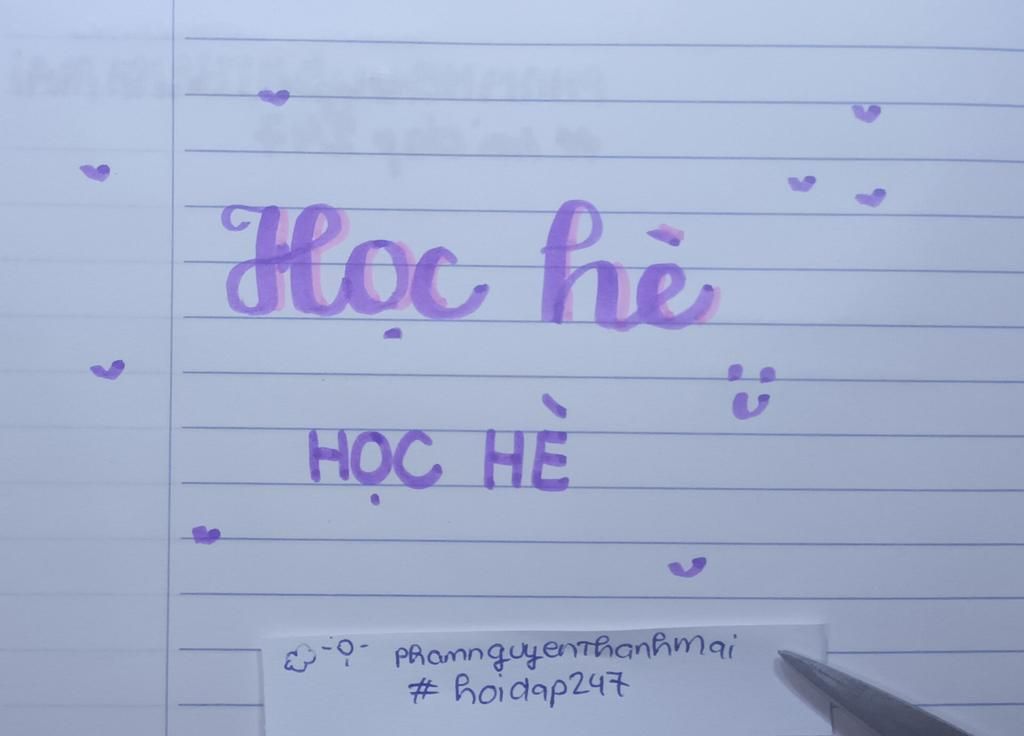 Học hè
HỌC HÈ
phamnguyenthanhmai
# hoidap247